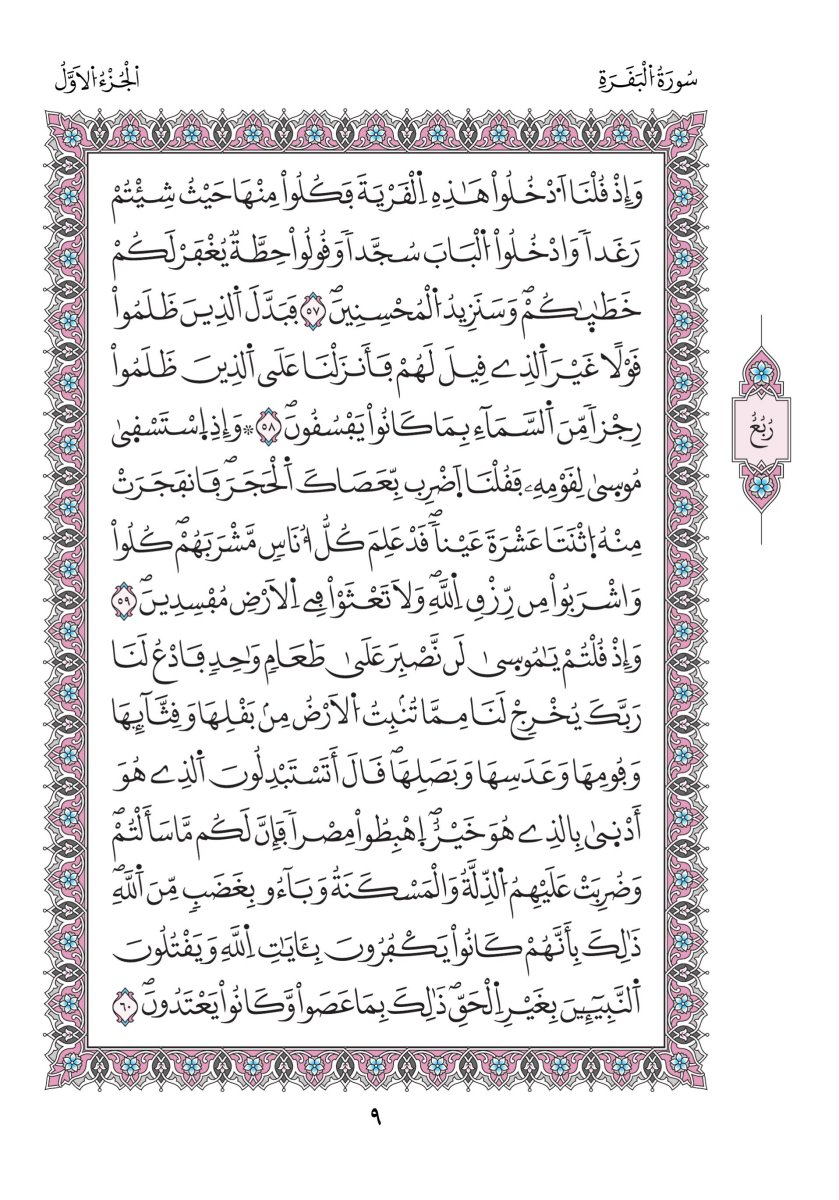 سُورَةُ اُ۬لْبَقَرَةِ
اُ۬لْجُزْءُ اُ۬لَاوَّلُ
وَإِذْ قُلْنَا اَ۟دْخُلُواْ هَٰذِهِ اِ۬لْقَرْيَةَ فَكُلُواْ مِنْهَا حَيْثُ شِئْتُمْ
رَغَداٗ وَادْخُلُواْ اُ۬لْبَابَ سُجَّداٗ وَقُولُواْ حِطَّةٞ يُغْفَرْ لَكُمْ
خَطَٰيَٰكُمْۖ وَسَنَزِيدُ اُ۬لْمُحْسِنِينَۖ ٥٧ فَبَدَّلَ اَ۬لذِينَ ظَلَمُواْ
قَوْلًا غَيْرَ اَ۬لذِے قِيلَ لَهُمْ فَأَنزَلْنَا عَلَي اَ۬لذِينَ ظَلَمُواْ
رِجْزاٗ مِّنَ اَ۬لسَّمَآءِ بِمَا كَانُواْ يَفْسُقُونَۖ ٥٨ ۞وَإِذِ اِ۪سْتَسْق۪يٰ
مُوس۪يٰ لِقَوْمِهِۦ فَقُلْنَا اَ۪ضْرِب بِّعَصَاكَ اَ۬لْحَجَرَۖ فَانفَجَرَتْ
مِنْهُ اُ۪ثْنَتَا عَشْرَةَ عَيْناٗۖ قَدْ عَلِمَ كُلُّ أُنَاسٖ مَّشْرَبَهُمْۖ كُلُواْ
وَاشْرَبُواْ مِن رِّزْقِ اِ۬للَّهِۖ وَلَا تَعْثَوْاْ فِے اِ۬لَارْضِ مُفْسِدِينَۖ ٥٩
وَإِذْ قُلْتُمْ يَٰمُوس۪يٰ لَن نَّصْبِرَ عَلَيٰ طَعَامٖ وَٰحِدٖ فَادْعُ لَنَا
رَبَّكَ يُخْرِجْ لَنَا مِمَّا تُنۢبِتُ اُ۬لَارْضُ مِنۢ بَقْلِهَا وَقِثَّآئِهَا
وَفُومِهَا وَعَدَسِهَا وَبَصَلِهَاۖ قَالَ أَتَسْتَبْدِلُونَ اَ۬لذِے هُوَ
أَدْن۪يٰ بِالذِے هُوَ خَيْرٌۖ اِ۪هْبِطُواْ مِصْراٗ فَإِنَّ لَكُم مَّا سَأَلْتُمْۖ
وَضُرِبَتْ عَلَيْهِمُ اُ۬لذِّلَّةُ وَالْمَسْكَنَةُ وَبَآءُو بِغَضَبٖ مِّنَ اَ۬للَّهِۖ
ذَٰلِكَ بِأَنَّهُمْ كَانُواْ يَكْفُرُونَ بِـَٔايَٰتِ اِ۬للَّهِ وَيَقْتُلُونَ
اَ۬لنَّبِيٓـِٕينَ بِغَيْرِ اِ۬لْحَقِّۖ ذَٰلِكَ بِمَا عَصَواْ وَّكَانُواْ يَعْتَدُونَۖ ٦٠
رُبُعُ
٩